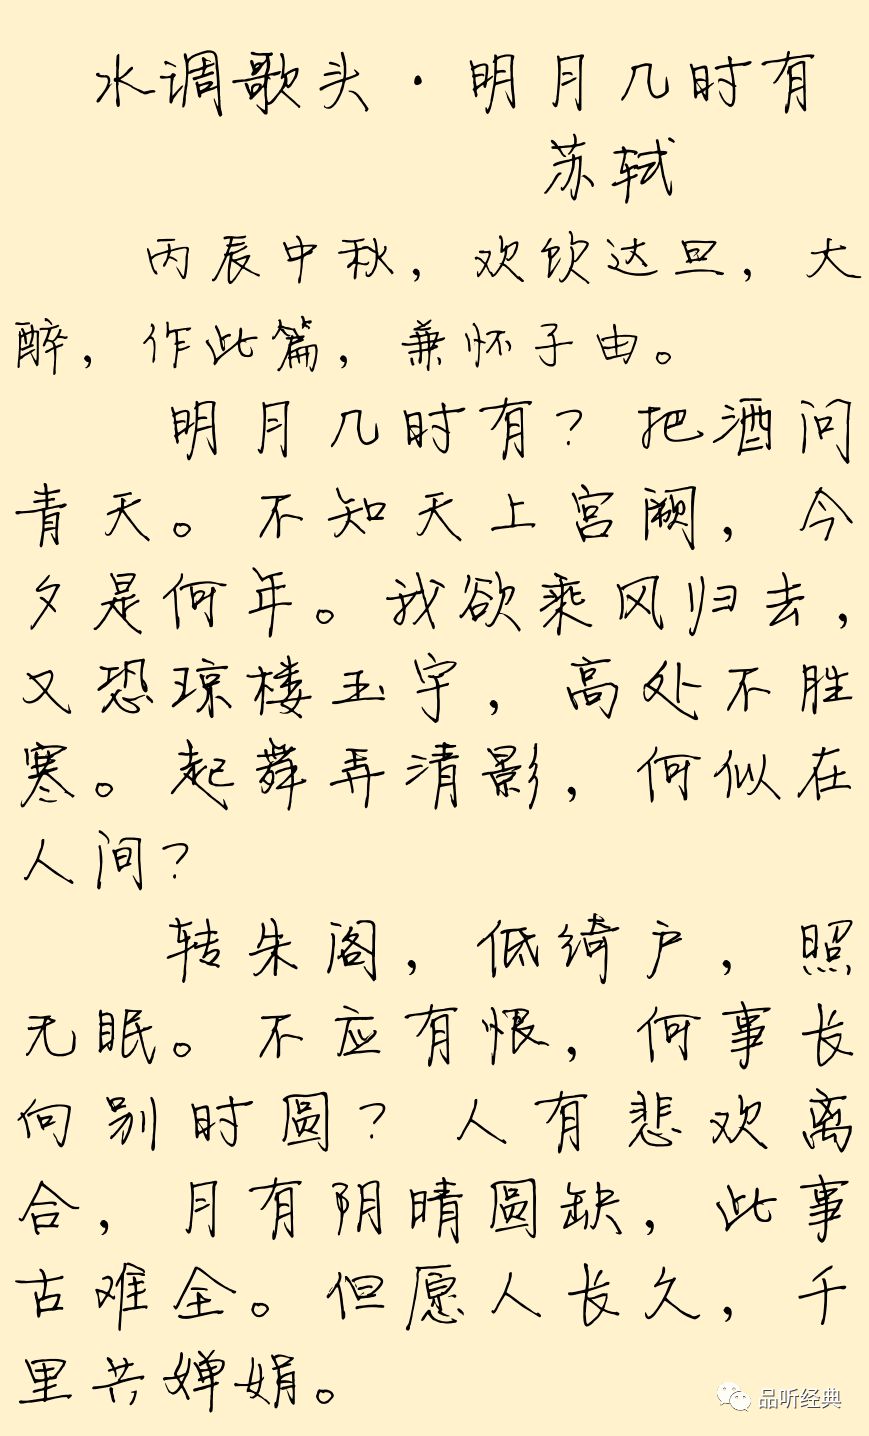 水调歌头·明月几时有
苏轼
丙辰中秋，欢饮达旦，大
醉，作此篇，兼怀子由。
明月几时有？把酒问
青天。不知天上宫阙，今
夕是何年。我欲乘风归去，
又恐琼楼玉宇，高处不胜
寒。起舞弄清影，何似在
人间？
转朱阁，低绮户，照
无眠。不应有恨，何事长
向别时圆？人有悲欢离
合，月有阴晴圆缺，此事
古难全。但愿人长久，千
里共婵娟。
品听经典